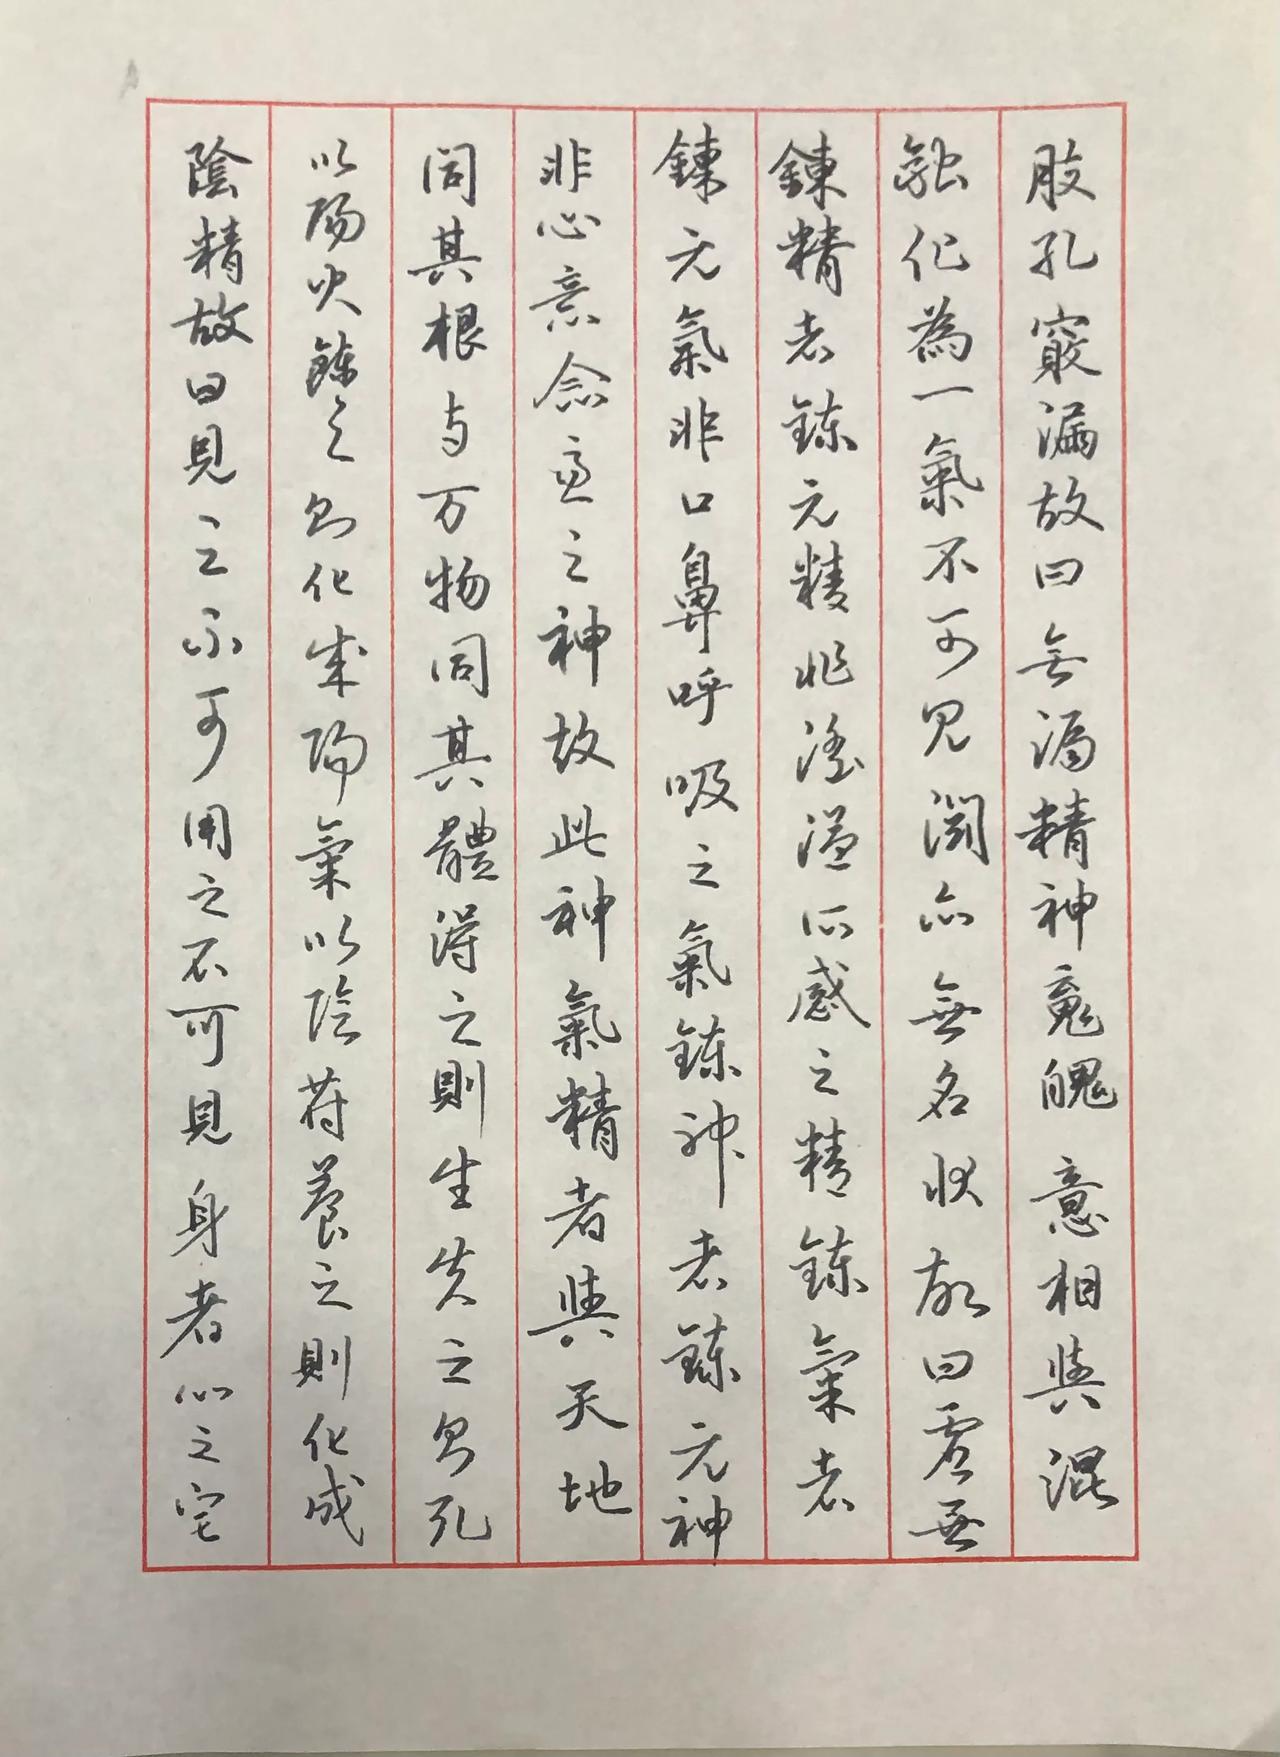 肢孔竅漏故曰無漏精神魂魄意相與混
融化為一氣不可見聞亦無名狀故曰虛無
鍊精者鍊元精非淫泆所感之精鍊氣者
鍊元氣非口鼻呼吸之氣鍊神者鍊元神
非心意念慮之神故此神氣精者與天地
同其根与万物同其體得之則生失之則死
以陽火鍊之則化成陽氣以陰符養之則化成
陰精故曰見之不可用之不可見身者心之宅